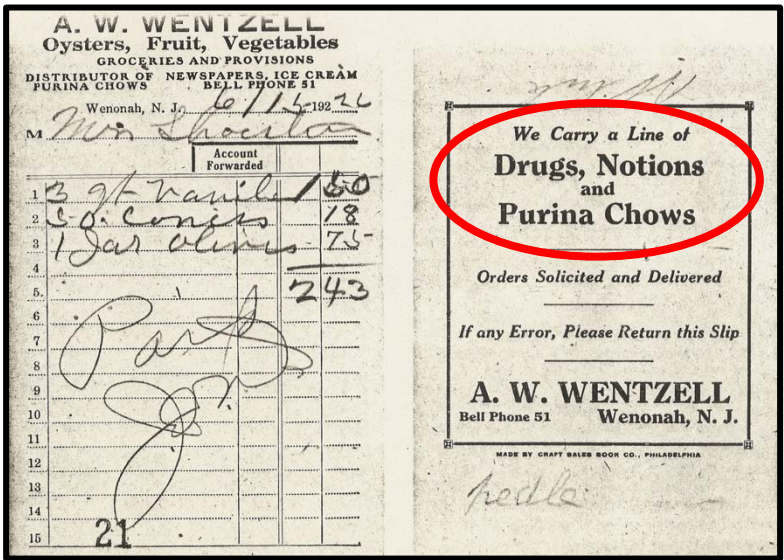 A. W. WENTZELL
Oysters, Fruit, Vegetables
GROCERIES AND PROVISIONS
DISTRIBUTOR OF NEWSPAPERS, ICE CREAM
PURINA CHOWS BELL PHONE 51
Wenonah, N. J. 6/15 192
M Mrs
Account
Forwarded
1 3 qt Vanila 1 50
2 50. Cones 18
3 1 Jar olives 75
4
5. 2 43
6
7
8
9
10
11
12
13
14
15 21
We Carry a Line of
Drugs, Notions
and
Purina Chows
Orders Solicited and Delivered
If any Error, Please Return this Slip
A. W. WENTZELL
Bell Phone 51 Wenonah, N. J.
MADE BY CRAFT SALES BOOK CO., PHILADELPHIA